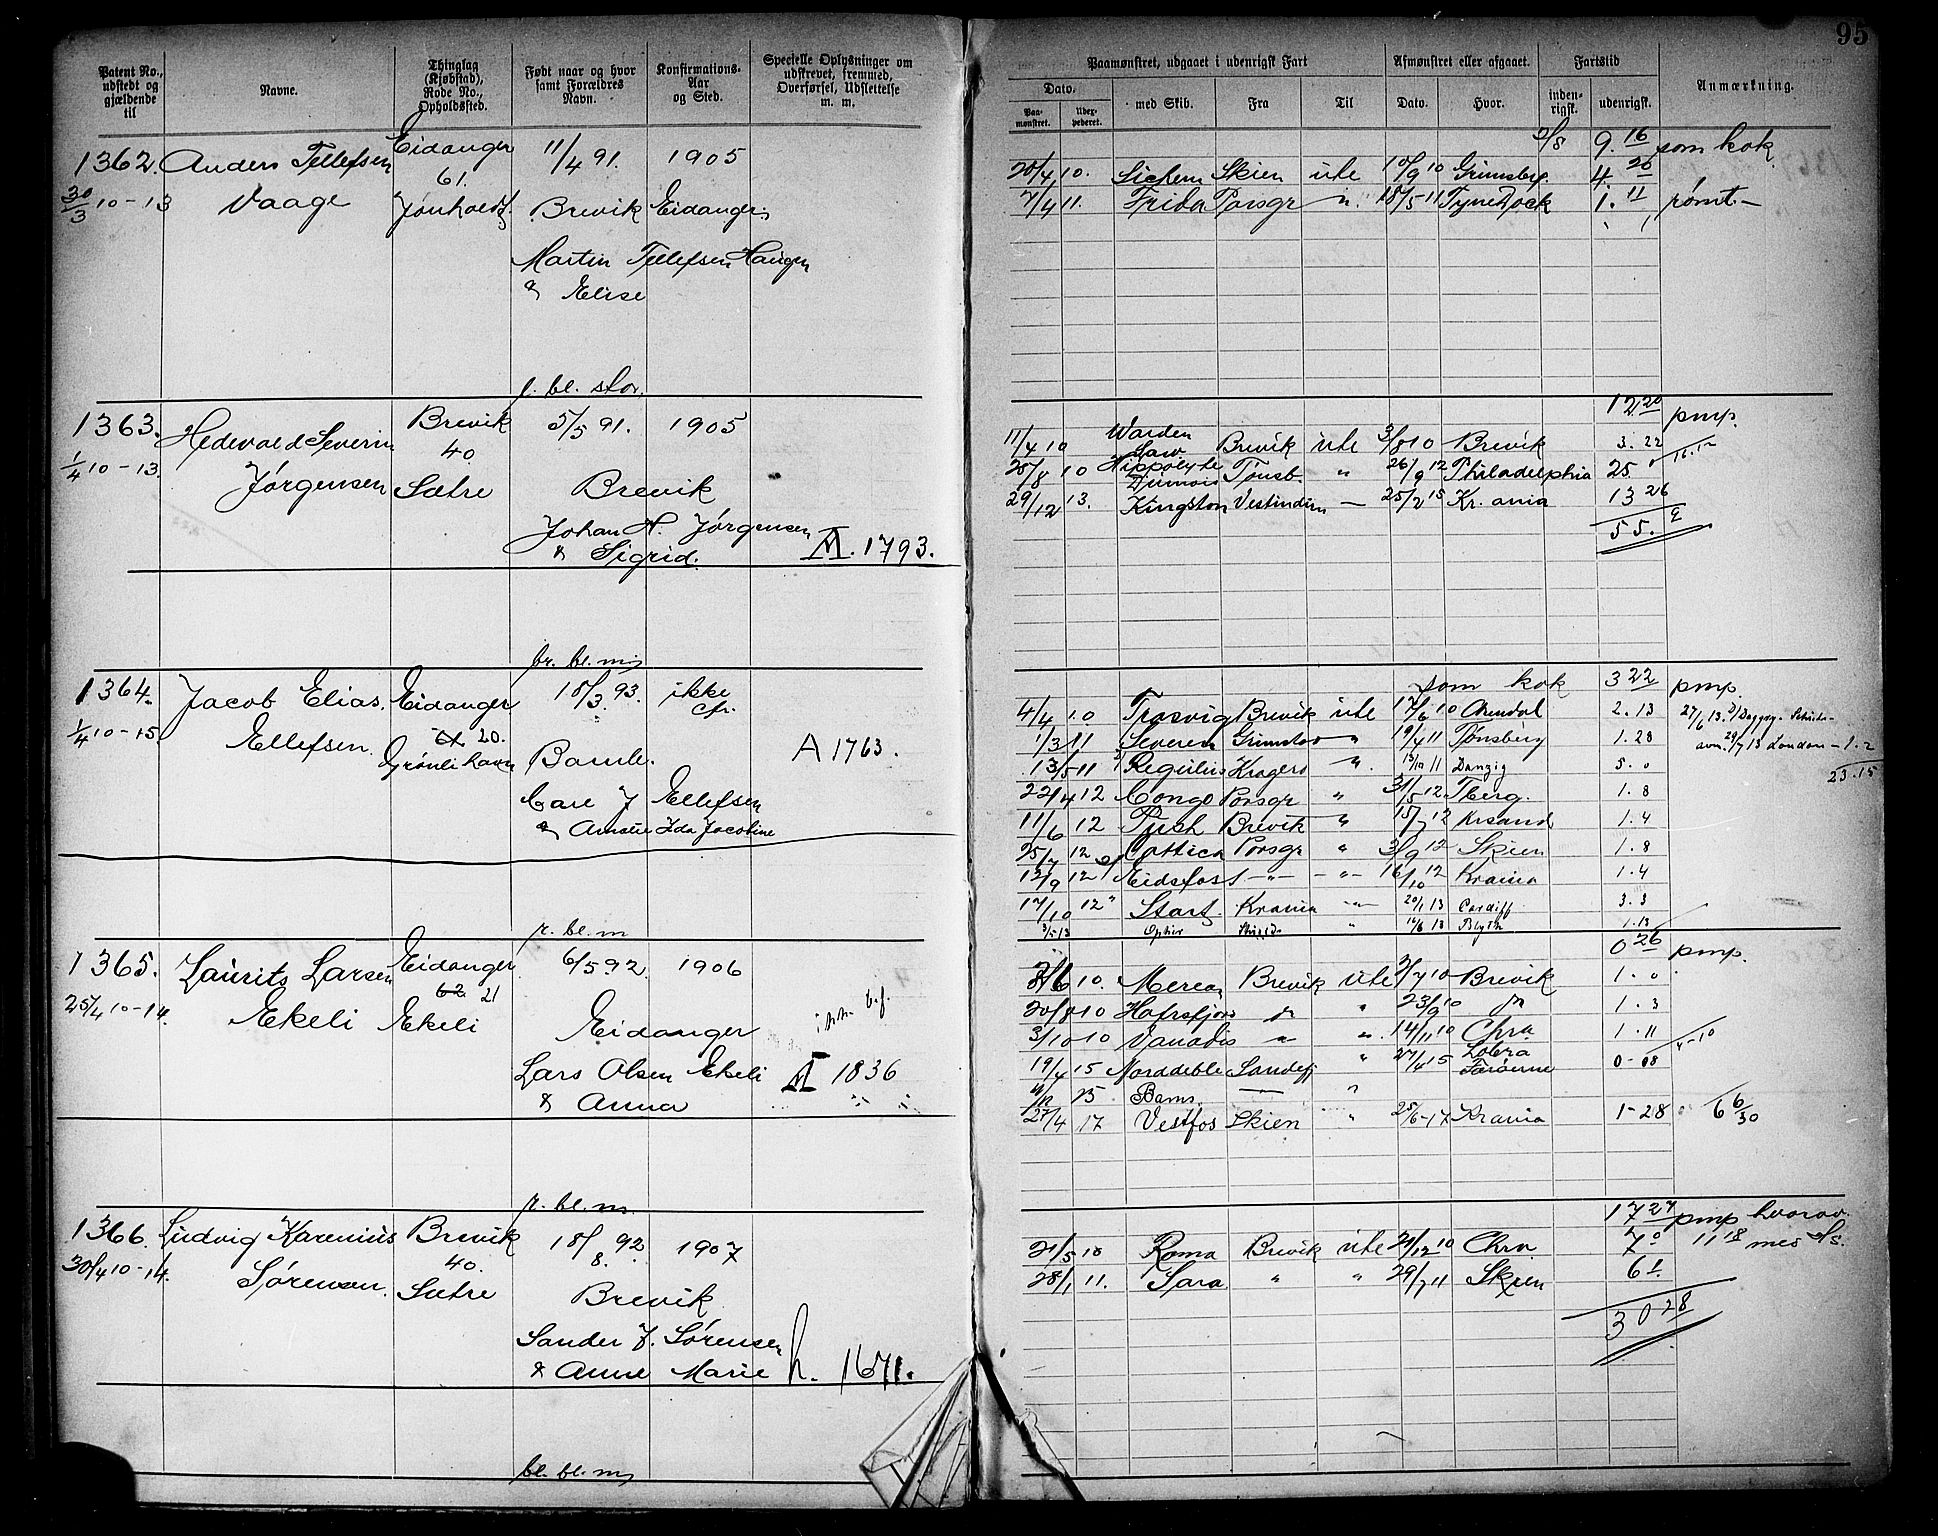 95
Patent No., udstedt og gjældende til
Navne.
Thinglag (Kjøbstad), Rode No., Opholdssted.
Født naar og hvor samt Forældres Navn.
Konfirmations-Aar og Sted.
Specielle Oplysninger om udskrevet, fremmed, Overførsel, Udslettelse m. m.
Paamønstret, udgaaet i udenrigsk Fart
Afmønstret eller afgaaet.
Fartstid
Anmærkning.
Dato.
Paa-mønstret.
Udex-pederet.
med Skib.
Fra
Til
Dato.
Hvor.
inden-rigsk.
udenrigsk.
1362. Anders Tellefsen Eidanger 11/4 91. 1905
30/3 10-13 Vaage 61. Brevik Eidanger
Martin Tellefsen Haugen
& Elise
9. 16 som kok
20/4 10. Sichem Skien ute 10/9 10 Grimsby. 4 26
7/4 11. Frida Porsgr 18/5-11 Tyne Dock 1. 11 rømt-
1363. Hedevald Severin Brevik 5/5 91. 1905
1/4 10-13. Jørgensen 40. Sætre Brevik
Johan H. Jørgensen
& Sigrid. 1793.
12 20 pmp.
11/4 10 Warden Law Brevik ute 3/8 10 Brevik 3. 22
25/8 10 Hippolyte Dumois Tønsb. " 26/9 12 Philadelphia 25
29/12 13. Kingston Vestindien — 25/2 15 Kr. ania 13 26
55. 9
br. bl. m
1364. Jacob Elias Eidanger 18/3 93. ikke cfr.
1/4 10-15. Ellefsen. 20. Grønlihavn Bamle. A 1763.
Carl J Ellefsen
& Amalie Ida Jacobine
som kok 3 22 pmp.
4/4 10 Trosvig Brevik ute 17/6 10 Arendal 2. 13
1/3 11 Severen Grimstad " 19/4 11 Tønsberg 1. 28
13/5 11 Regulus Kragerø " 13/10 11 Danzig 5. 0
London - 1. 2
23. 15
22/4 12 Congo Porsgr " 31/5 12 Tberg. 1. 8
11/6 12 Push Brevik " 15/7 12 Krsand 1. 4
25/7 12 Porsgr " 3/9 12 Skien 1. 8
12/9 12 Eidsfos -"- -"- 16/10 12 Krania 1. 4
17/10 12 Start Krania -"- 20/1 13 Cardiff 3. 3
3/5 13 Ophir Shields " 16/6 13 Blyth 1. 13
r. bl. m
1365. Laurits Larsen Eidanger 6/5 92 1906
25/4 10-14. Ekeli 62 21 Ekeli Eidanger
Lars Olsen Ekeli 1836
& Anna
0 26 pmp.
Brevik ute 10 Brevik 1. 0
20/8 10 Hafrsfjord " 23/9 10 1. 3
3/10 10 Vanadis " " 14/11 10 Chra 1. 11
19/4 15 Sandefj " 27/4 15 Færøerne 0-08
27/4 17 Vestfos Skien " 25/6-17 Krania 1-28 6 6/30
r. bl. m.
1366. Ludvig Karenius Brevik 18/8. 92 1907
30/4 10-14. Sørensen. 40. Sætre Brevik
Sander J. Sørensen
& Anne Marie h. 1671.
17 27 pmp hvorav
11 18 mes
21/5 10 Roma Brevik ute 21/12 10 Chra 7 0
28/1 11. Sara " " 29/7 11 Skien 6 1.
30 28
bl. bl. m